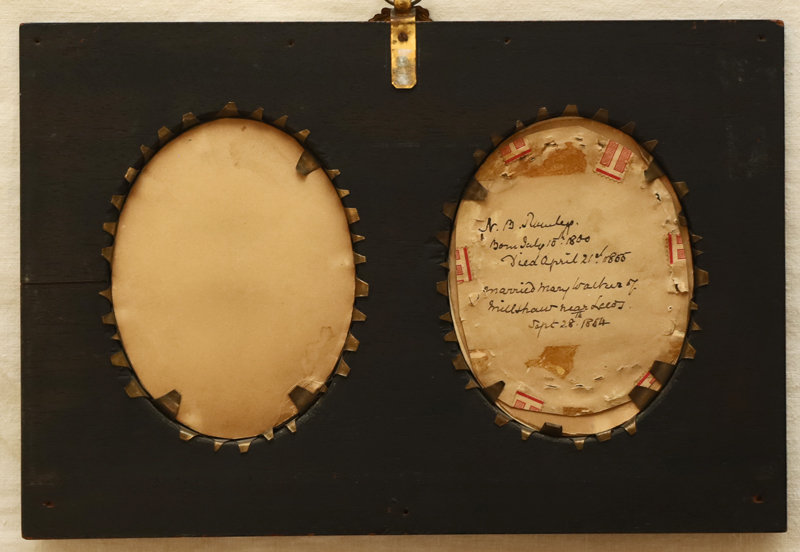 N. B. Rowley.
Born July 15th 1830
Died April 21st 1865
married Mary Walker of
Millshaw near Leeds.
Sept 28th 1854